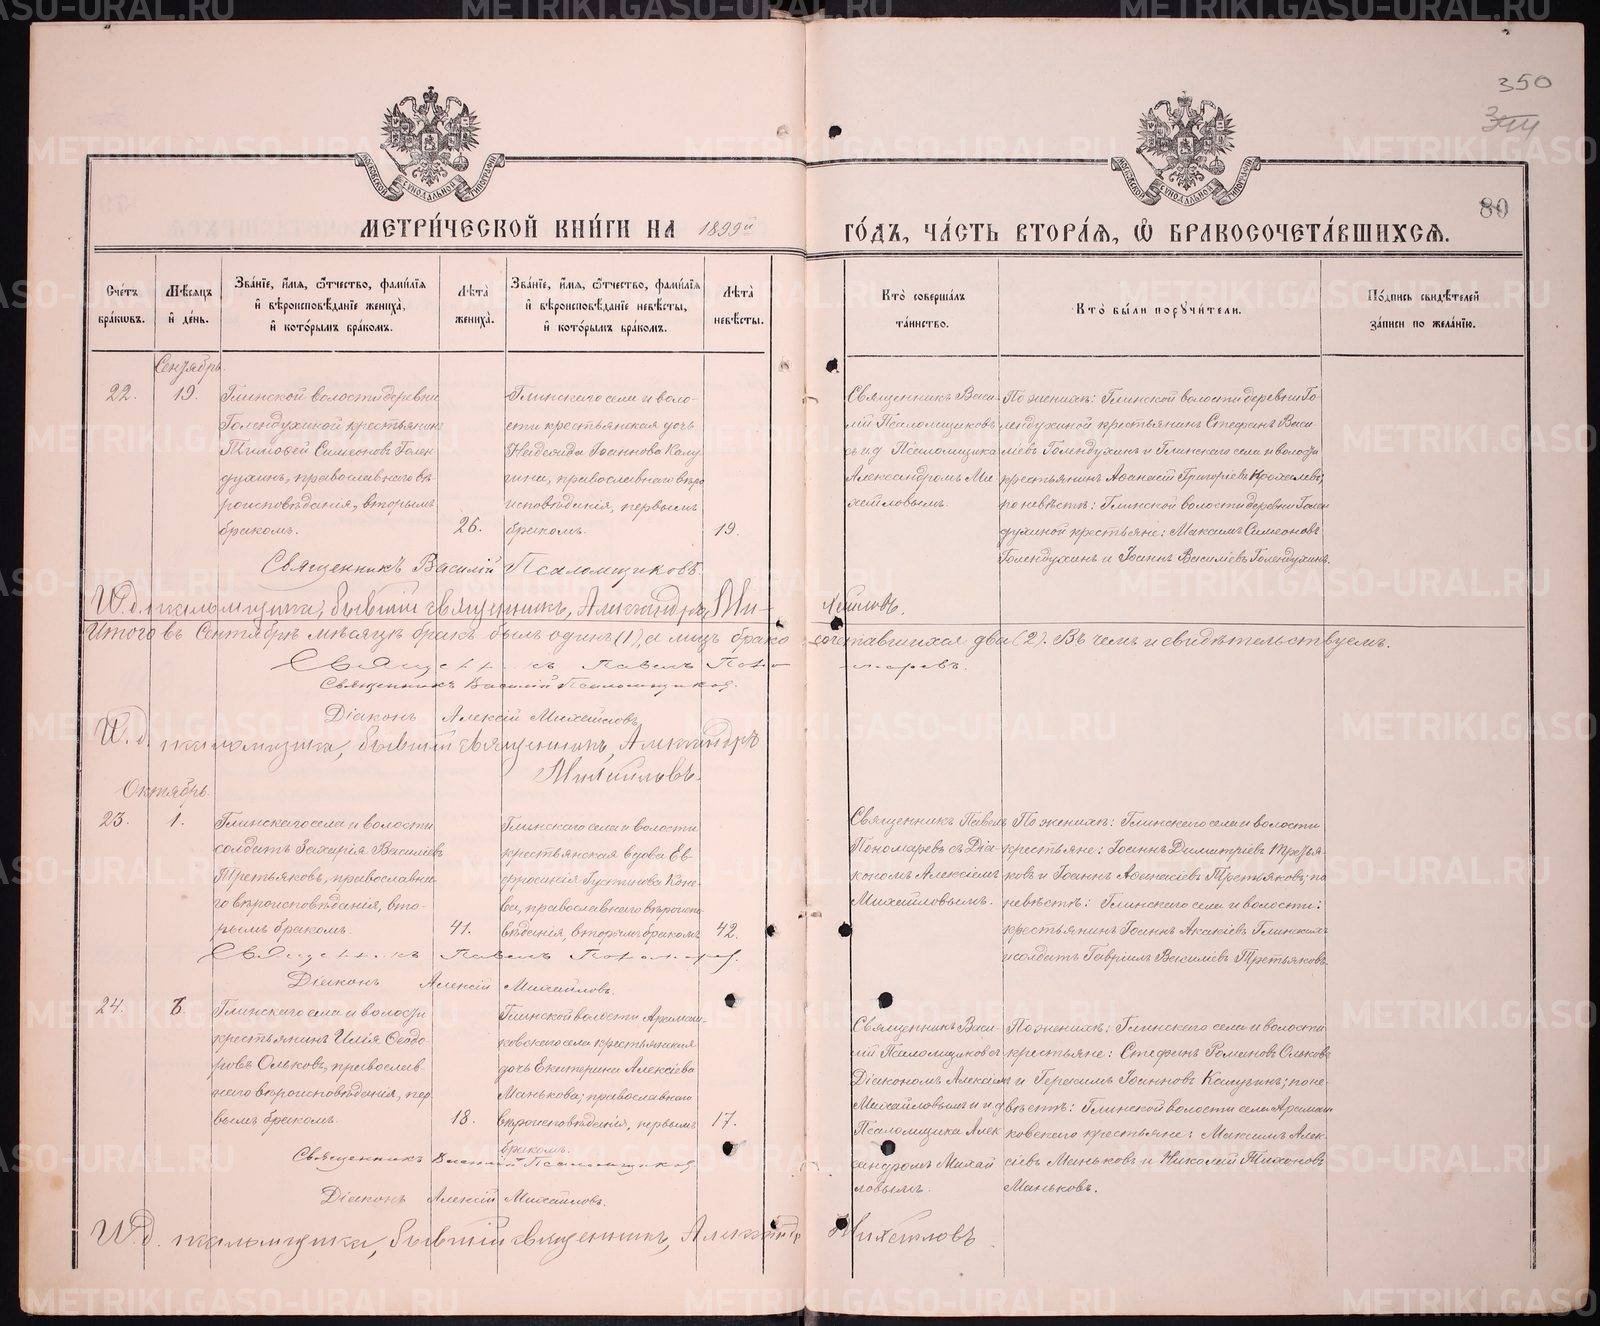 350
344
80
МОСКОВСКОЙ СѴНОДАЛЬНОЙ ТИПОГРАФІИ
МОСКОВСКОЙ СѴНОДАЛЬНОЙ ТИПОГРАФІИ
МЕТРИ́ЧЕСКОЙ КНИ́ГИ НА 1899й
ГО́ДЪ, ЧА́СТЬ ВТОРА́Я, Ѡ БРАКОСОЧЕТА́ВШИХСЯ.
Сче́тъ бра́ковъ.
Мѣ́сяцъ и де́нь.
Зва́нїе, и́мя, ѻ́тчество, фами́лїя и вѣроисповѣ́данїе жениха̀, и кото́рымъ бра́комъ.
Лѣ́та жениха̀.
Зва́нїе, и́мя, ѻ́тчество, фами́лїя и вѣроисповѣ́данїе невѣ́сты, и кото́рымъ бра́комъ.
Лѣ́та невѣ́сты.
Кто̀ соверша́лъ та́инство.
Кто̀ бы́ли порꙋчи́тели.
По́дпись свидѣ́телей за́писи по жела́нїю.
Сентябрь.
22.
19.
Глинской волости деревни
Голендухиной крестьянинъ
Тимоѳей Симеоновъ Голен-
духинъ, православнаго вѣ
роисповѣданія, вторымъ
бракомъ.
26.
Глинскаго села и воло-
сти крестьянская дочь
Надежда Іоаннова Калу
гина, православнаго вѣро
исповѣданія, первымъ
бракомъ.
19.
Священникъ Васи-
лій Псаломщиковъ
съ и д Псаломщика
Александромъ Ми-
хайловымъ.
По женихѣ: Глинской волости деревни Го-
лендухиной крестьянинъ Стефанъ Васи-
ліевъ Голендухинъ и Глинскаго села и волости
крестьянинъ Аѳанасій Григоріевъ
по невѣстѣ: Глинской волости деревни Голен
духиной крестьяне: Максимъ Симеоновъ
Голендухинъ и Іоаннъ Василіевъ Голендухинъ.
Священникъ Василій Псаломщиковъ.
И.д. псаломщика, бывшій священникъ, Александръ Ми-
хайловъ.
Итого въ Сентябрѣ мѣсяцѣ бракъ былъ одинъ (1), а лицъ брако
сочетавшихся два (2). Въ чемъ и свидѣтельствуемъ.
Священникъ Павелъ Поно-
маревъ.
Священникъ Василій Псаломщиковъ.
Діаконъ Алексій Михайловъ
И.д. псаломщика, бывшій священникъ, Александръ
Михайловъ.
Октябрь.
23.
1.
Глинскаго села и волости
солдатъ Захарія Василіевъ
Третьяковъ, православна
го вѣроисповѣданія, вто-
рымъ бракомъ.
41.
Глинскаго села и волости
крестьянская вдова Ев-
фросинія Густинова Коне-
ва, православнаго вѣроиспо
вѣданія, вторымъ бракомъ
42.
Священникъ Павелъ
Пономаревъ съ Діа-
кономъ Алексіемъ
Михайловымъ.
По женихѣ: Глинскаго села и волости
крестьяне: Іоаннъ Димитріевъ Третья-
ковъ и Іоаннъ Аѳанасіевъ Третьяковъ; по
невѣстѣ: Глинскаго села и волости:
крестьянинъ Іоаннъ Акакіевъ Глинскихъ
и солдатъ Гавріилъ Василіевъ Третьяковъ
Священникъ Павелъ Пономарев.
Діаконъ Алексій Михайловъ.
24.
Глинскаго села и волости
крестьянинъ Илія Ѳеодо-
ровъ Ольковъ, православ
наго вѣроисповѣданія, пер
вымъ бракомъ.
18.
Глинской волости Арамаш-
ковскаго села крестьянская
дочь Екатерина Алексіева
Манькова; православнаго
вѣроисповѣданія, первымъ
бракомъ.
17.
Священникъ Васи-
лій Псаломщиковъ съ
Діакономъ Алексіемъ
Михайловымъ и и д
Псаломщика Алек
сандромъ Михай
ловымъ.
По женихѣ: Глинскаго села и волости
крестьяне: Стефанъ Романовъ Ольковъ
и Герасимъ Іоанновъ Калугинъ; по не-
вѣстѣ: Глинской волости села Арамаш
ковскаго крестьяне: Максимъ Алек-
сіевъ Маньковъ и Николай Тихоновъ
Маньковъ.
Священникъ Василій Псаломщиков
Діаконъ Алексій Михайловъ.
И.д. псаломщика, бывшій священникъ, Александръ
Михайловъ